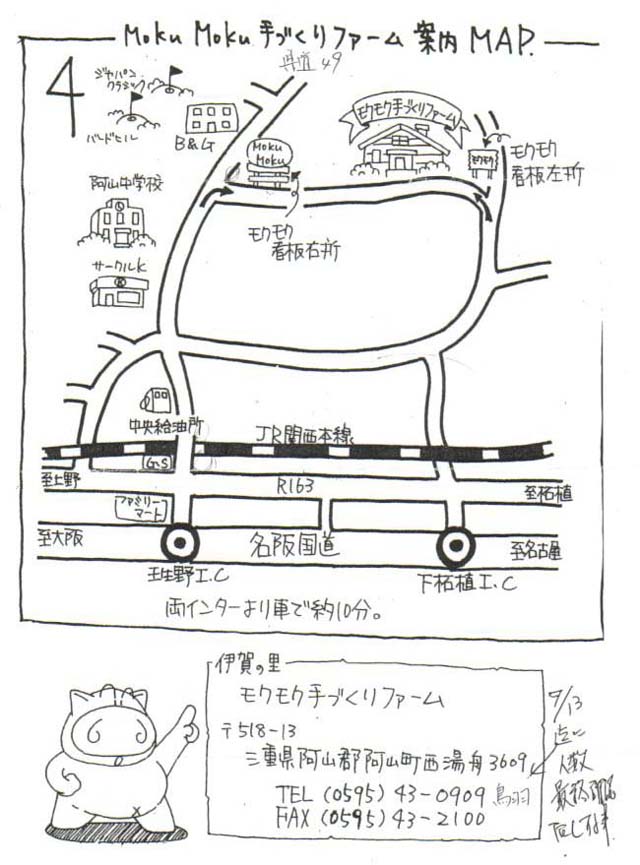 Moku Moku 手づくりファーム 案内 MAP.
県道49
ジャパン
クラシック
バードヒル
B&G
Moku
Moku
モクモク手づくりファーム
モクモク
モクモク
看板左所
阿山中学校
モクモク
看板右所
サークルK
中央給油所
JR関西本線
G.S
至上野
R163
至柘植
ファミリー
マート
至大阪
名阪国道
至名古屋
壬生野I.C
下柘植I.C
両インターより車で約10分。
伊賀の里
モクモク手づくりファーム
〒518-13
三重県阿山郡阿山町西湯舟3609
TEL (0595) 43-0909
鳥羽
FAX (0595) 43-2100
9/13
人数